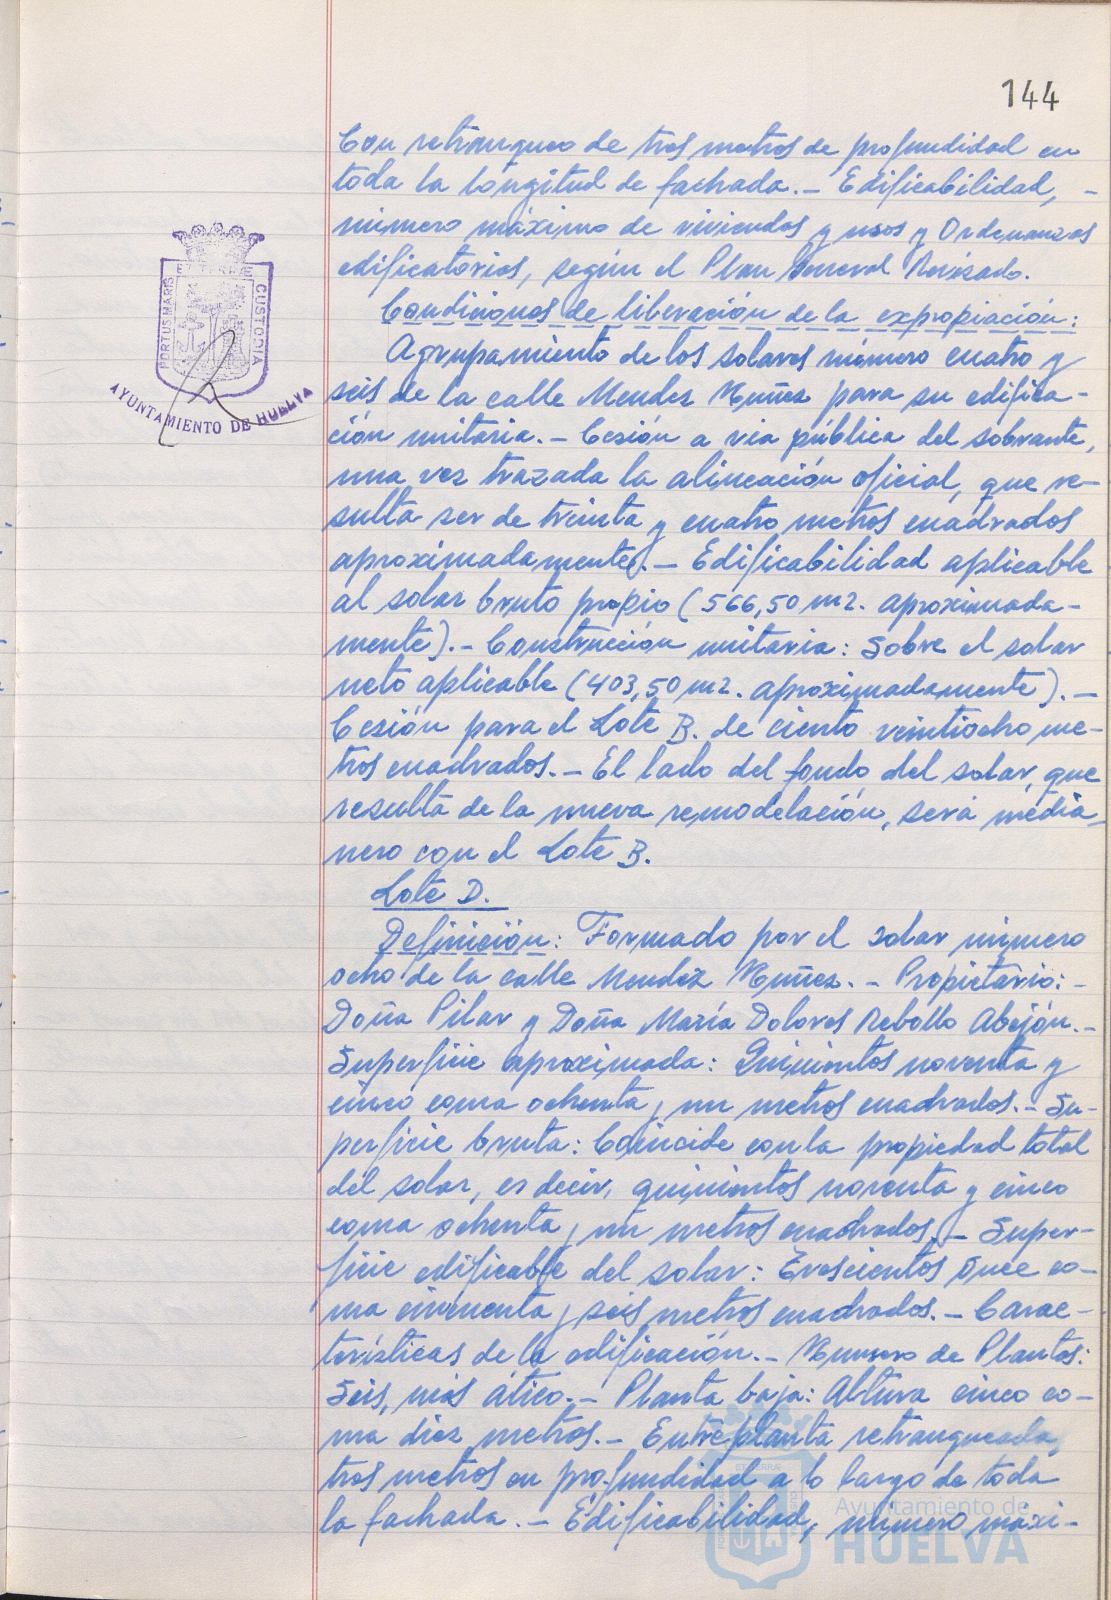 144
Con retranqueo de tres metros de profundidad en
toda la longitud de fachada.- Edificabilidad, -
número máximo de viviendas y usos y Ordenanzas
edificatorias, según el Plan General Revisado.
Condiciones de liberación de la expropiación:
Agrupamiento de los solares número cuatro y
seis de la calle Mendez Nuñez para su edifica-
ción unitaria.- Cesión a via pública del sobrante,
una vez trazada la alineación oficial, que re-
sulta ser de treinta y cuatro metros cuadrados
aproximadamente.- Edificabilidad aplicable
al solar bruto propio (566,50 m2. aproximada-
mente).- Construcción unitaria: Sobre el solar
neto aplicable (403,50 m2. aproximadamente).-
Cesión para el Lote B. de ciento veintiocho me-
tros cuadrados.- El lado del fondo del solar, que
resulta de la nueva remodelación, será media-
nero con el Lote B.
Lote D.
Definición: Formado por el solar número
ocho de la calle Mendez Nuñez.- Propietario: -
Doña Pilar y Doña María Dolores Rebollo Abejón.-
Superficie aproximada: Quinientos noventa y
cinco coma ochenta y un metros cuadrados.- Su-
perficie bruta: Coincide con la propiedad total
del solar, es decir, quinientos noventa y cinco
coma ochenta y un metros cuadrados.- Super-
ficie edificable del solar: Trescientos once co-
ma cincuenta y seis metros cuadrados.- Carac-
terísticas de la edificación.- Numero de Plantas:
Seis, más ático.- Planta baja: Altura cinco co-
ma diez metros.- Entreplanta retranqueada,
tres metros en profundidad a lo largo de toda
la fachada.- Edificabilidad, número máxi-
PORTUS MARIS
ET TERRE
CUSTODIA
AYUNTAMIENTO DE HUELVA
Ayuntamiento de
HUELVA